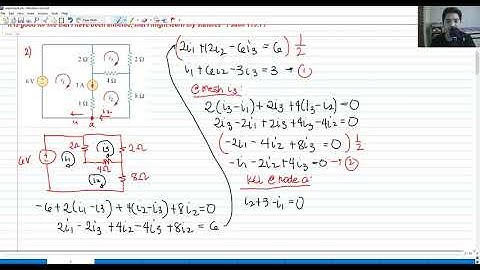 It is good for me that I have been afflicted, that I might learn thy statutes. - Psalm 119:71
2)
2 Ω
i3
2 Ω
4 Ω
6 V
i1
3 A
i2
8 Ω
1 Ω
i1
a
i2
6V
i1
2Ω
i3
2Ω
4Ω
i2
8Ω
-6+2(i1-i3)+4(i2-i3)+8i2=0
2i1-2i3+4i2-4i3+8i2=6
(2i1+12i2-6i3=6) 1/2
i1+6i2-3i3=3 → ①
@mesh i3:
2(i3-i1)+2i3+4(i3-i2)=0
2i3-2i1+2i3+4i3-4i2=0
(-2i1-4i2+8i3=0) 1/2
-i1-2i2+4i3=0 → ②
KCL @ node a:
i2+3-i1=0